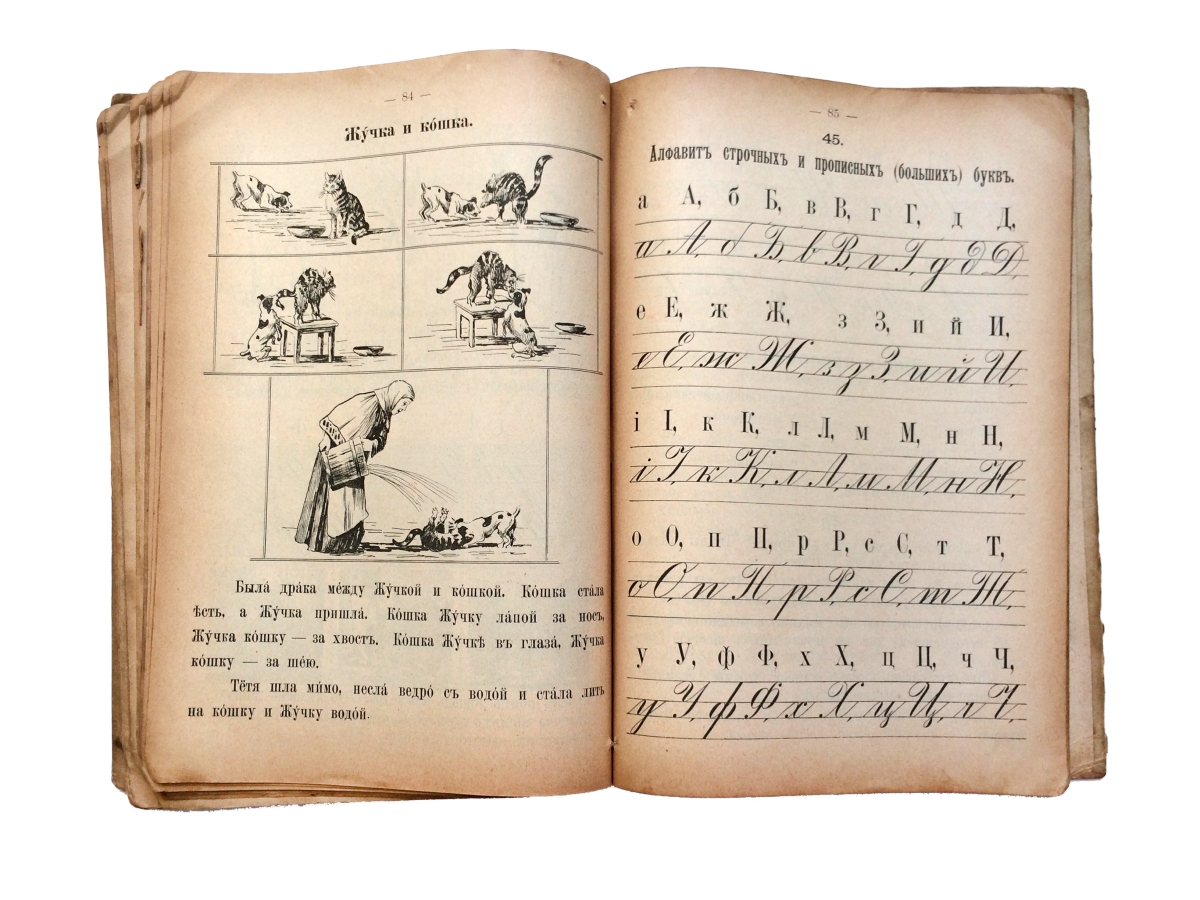 — 84 —
Жу́чка и ко́шка.
Была́ дра́ка ме́жду Жу́чкой и ко́шкой. Ко́шка ста́ла
ѣсть, а Жу́чка пришла́. Ко́шка Жу́чку ла́пой за носъ,
Жу́чка ко́шку — за хвостъ. Ко́шка Жу́чкѣ въ глаза́, Жу́чка
ко́шку — за ше́ю.
Тётя шла ми́мо, несла́ ведро́ съ водо́й и ста́ла лить
на ко́шку и Жу́чку водо́й.
— 85 —
45.
Алфавитъ строчныхъ и прописныхъ (большихъ) буквъ.
а А, б Б, в В, г Г, д Д,
а А, б Б, в В, г Г, д д Д,
е Е, ж Ж, з З, и й И,
е Е, ж Ж, з з З, и й И,
і І, к К, л Л, м М, н Н,
і І, к К, л Л, м М, н Н,
о О, п П, р Р, с С, т Т,
о О, п П, р Р, с С, т Т,
у У, ф Ф, х Х, ц Ц, ч Ч,
у У, ф Ф, х Х, ц Ц, ч Ч,